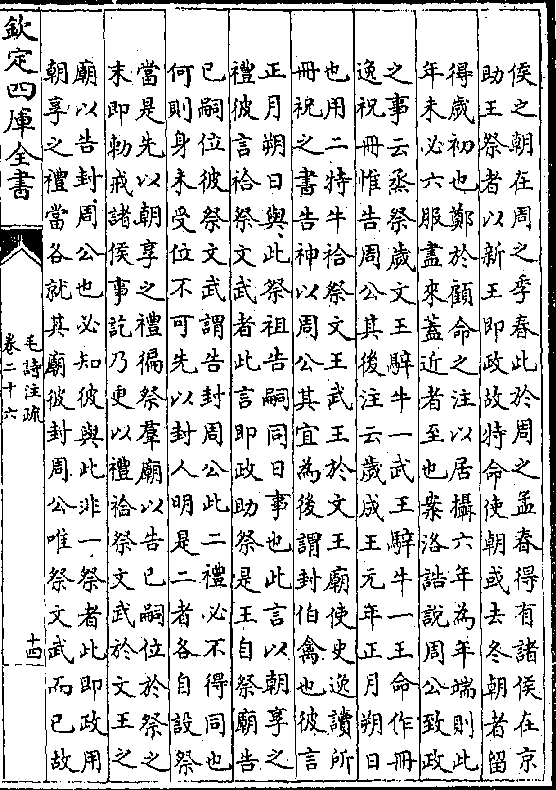 侯之朝在周之季春此於周之孟春得有諸侯在京
助王祭者以新王即政故特命使朝或去冬朝者留
得歲初也鄭於顧命之注以居攝六年為年端則此
年未必六服盡來蓋近者至也案洛誥說周公致政
之事云烝祭歲文王騂牛一武王騂牛一王命作冊
逸祝冊惟告周公其後注云歲成王元年正月朔日
也用二特牛祫祭文王武王於文王廟使史逸讀所
冊祝之書告神以周公其宜為後謂封伯禽也彼言
正月朔日與此祭祖告嗣同日事也此言以朝享之
禮彼言祫祭文武者此言即政助祭是王自祭廟告
已嗣位彼祭文武謂告封周公此二禮必不得同也
何則身未受位不可先以封人明是二者各自設祭
當是先以朝享之禮徧祭羣廟以告已嗣位於祭之
末即勅戒諸侯事訖乃更以禮祫祭文武於文王之
廟以告封周公也必知彼與此非一祭者此即政用
朝享之禮當各就其廟彼封周公唯祭文武而已故
欽定四庫全書
毛詩注疏
卷二十六
十四